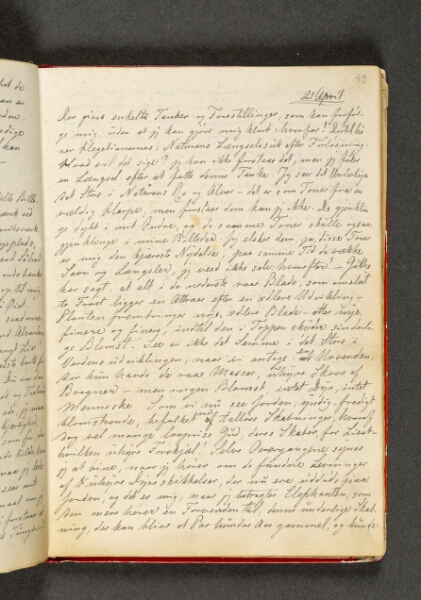 49
21 April
Der gives enkelte Tanker og Forestillinger, som kan forføl-
ge mig, uden at jeg kan gjøre mig klart hvorfor!
Naturens Længselssuk efter Forløsning.
Hvad vil det sige? jeg kan ikke forstaae det, men jeg føler
en Længsel efter at fatte denne Tanke. Jeg seer det Underlige
det Store i Naturens Ro og Alvor - det er som Toner fra en
vældig Harpe, men forstaae dem kan jeg ikke. De gjenklin-
ge dybt i mit Indre, og de samme Toner skulle ogsaa
gjenklinge i mine Billeder. Jeg elsker dem, ja disse Toner
er mig den kjæreste Nydelse, paa samme Tid de vække
Savn og Længsler, jeg veed ikke selv hvorefter! - Göthe
har sagt, at alt i de nederste raae Blade, som omslut-
te Frøet ligger en Attraa efter en ædlere Udvikling -
Planten frembringer nye, ædlere Blade - atter nye,
finere og finere, indtil den i Toppen skyder sin deili-
ge Blomst. See vi ikke det Samme i det Store i
Verdens udviklingen, naar vi antage en Urverden,
der kun havde de raae Masser, uhyre Skove af
Bregner - men ingen Blomst intet Dyr, intet
Menneske Som vi nu see Jorden, yndig, frodigt
blomstrende, befolket med af talløse Skabninger, hvoraf
dog vel mange lovprise Gud, deres Skaber, for Livet -
hvilken uhyre Forskjel! Selve Overgangene synes
jeg at ane, naar jeg hører om de fundne Levninger
af Uhyre Dyreskikkelser, der nu ere uddøde paa
Jorden, og det er mig, naar jeg betragter Elephanten, som
den mere hører en Forverden til, denne underlige Skab-
ning, der kan blive et Par hundre Aar gammel, og kunde